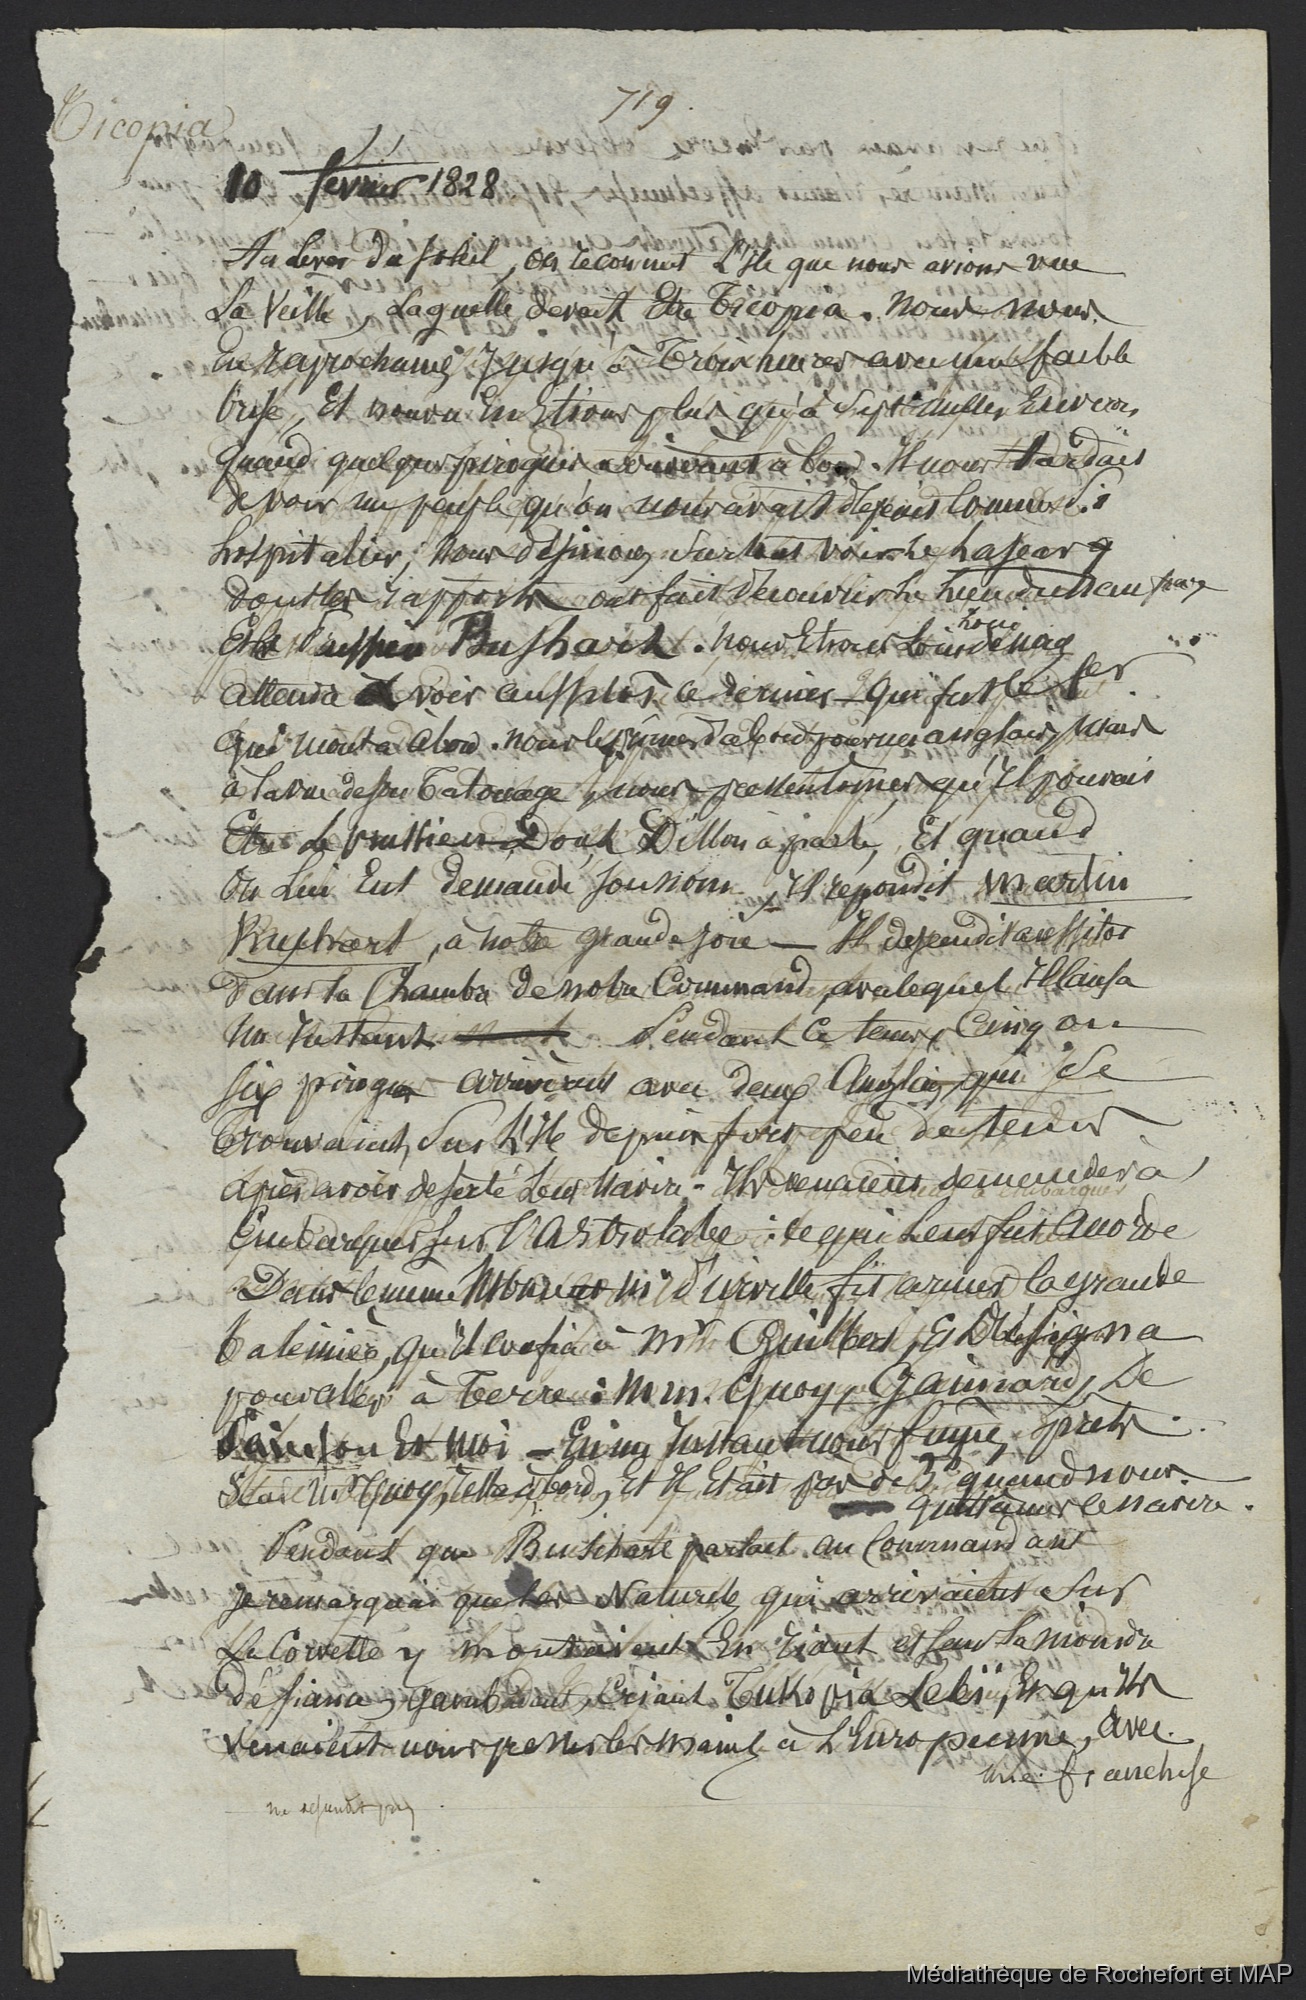 719.
Ticopia
10 fevrier 1828
Au Lever du Soleil, on reconnut L'Ile que nous avions vue
La Veille, Laquelle devait Etre Ticopia. nous nous
En raprochames Jusqu'à Trois heures avec une faible
brise, Et nous n'en Etions plus qu'à Sept milles Environ,
quand quelques pirogues arrivèrent à bord. Il nous tardait
de voir un peuple qu'on nous avait depeint comme si
hospitalier; nous desirions surtout voir le Lascar
dont les rapports ont fait decouvrir le Lieu du naufrage
Et le Prussien Bushart. nous Etions Loin de nous
attendre à voir aussitôt ce dernier qui fut le 1er
qui monta à bord. nous le prîmes d'abord pour un anglais, mais
à la vue de son Tatouage, nous pressentimes qu'Il pouvait
Etre Le prussien Dont Dillon à parlé, Et quand
On Lui Eut demandé son nom, Il répondit martin
Bushart, à notre grande joie — Il descendit aussitôt
Dans la Chambre de notre Command, avec lequel Il causa
un Instant. Pendant ce tems, Cinq ou
six pirogues arrivèrent avec deux Anglais, qui se
Trouvaient sur L'Ile depuis fort peu de tems
après avoir deserté Leur Navire - Ils venaient demander à
Embarquer sur l'Astrolabe : ce qui Leur fut accordé
Dans le même mr d'urville fit armer la grande
baleinière, qu'il confia à Mr Guilbert, Et Désigna
pour aller à Terre : M.m. Quoy, Gaimard, De
Sainson Et moi — En un Instant nous fumes prets.
Mr Quoy resta à bord, Et Il Etait près de 3h quand nous
quittames le navire.
Pendant que Bushart parlait au Commandant
je remarquai que les Naturels qui arrivaient sur
La Corvette y montaient En riant et sans la moindre
défiance, gambadant, Criant Tukopia Leleï, Et qu'Ils
venaient nous presser les mains à L'Européenne, avec
une franchise